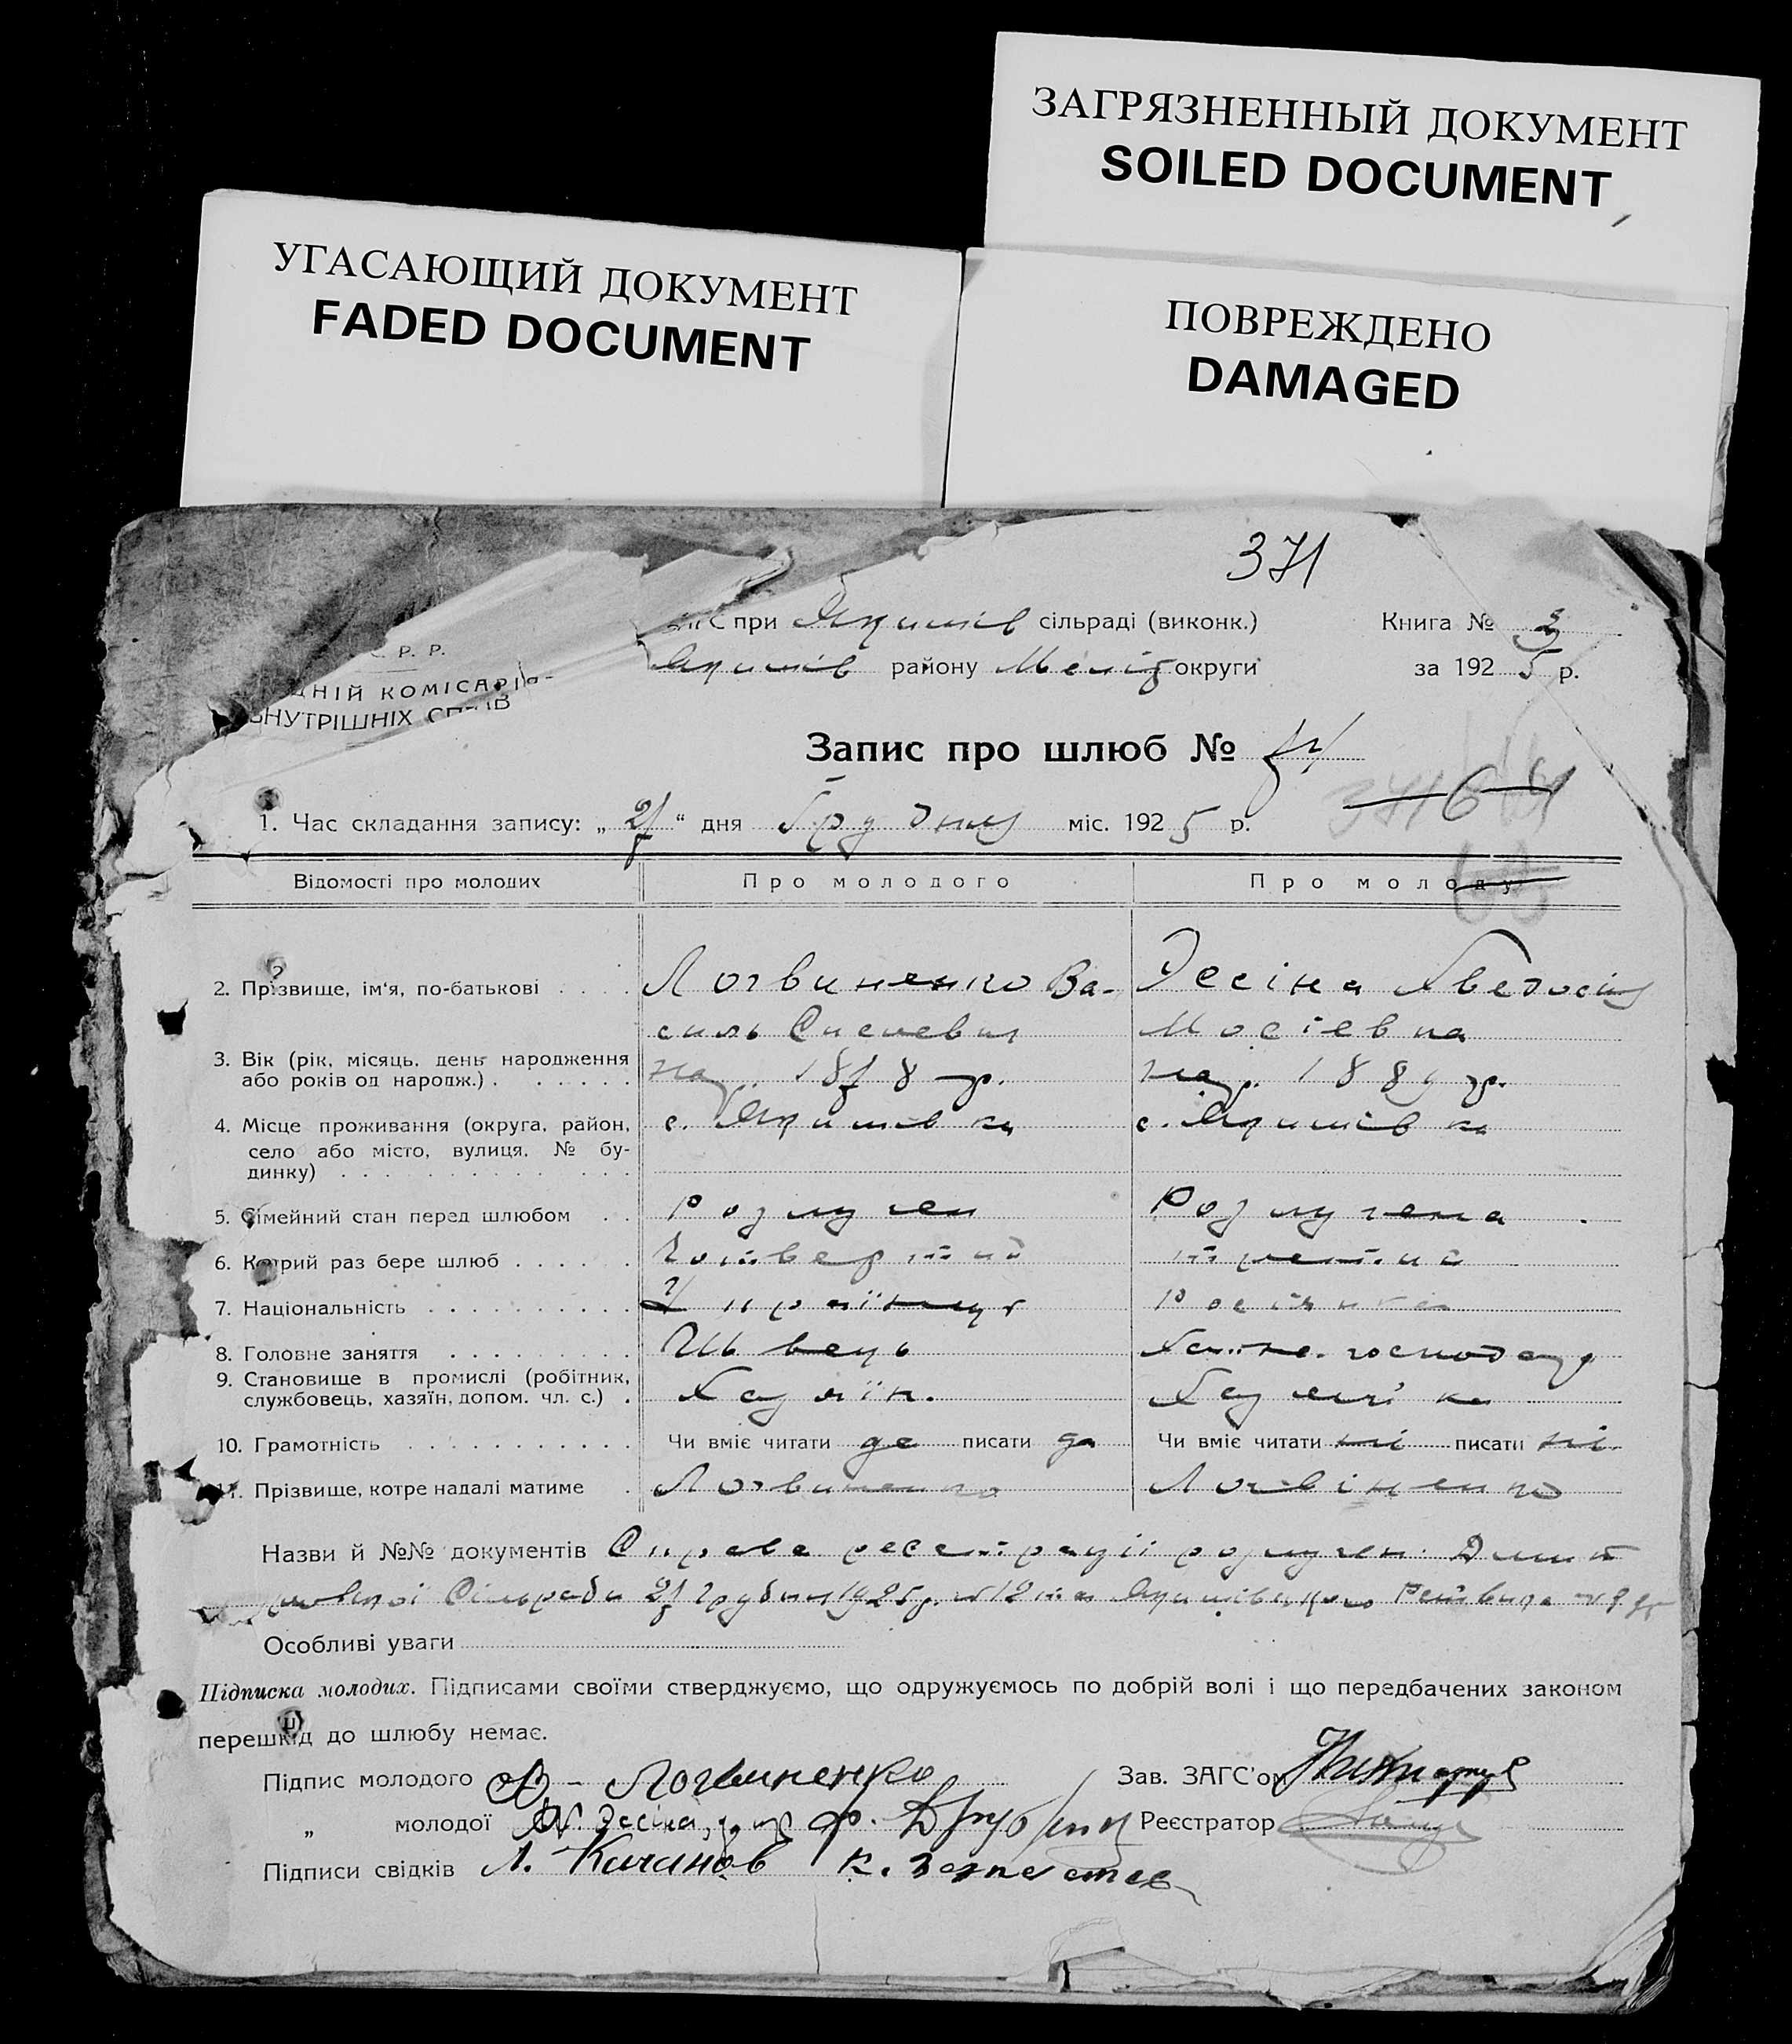 ЗАГРЯЗНЕННЫЙ ДОКУМЕНТ
SOILED DOCUMENT
УГАСАЮЩИЙ ДОКУМЕНТ
FADED DOCUMENT
ПОВРЕЖДЕНО
DAMAGED
371
ЗАГС при Якимів сільраді (виконк.) Книга № 3
Якимів району Меліт округи за 1925 р.
С. Р. Р.
ДНІЙ КОМІСАРІЯ-
ВНУТРІШНІХ СПРАВ
Запис про шлюб №
371 64
1. Час складання запису: „27“ дня Грудня міс. 1925 р.
Відомості про молодих Про молодого Про молоду
2. Прізвище, ім'я, по-батькові . . . . Логвиненко Ва- Эесіна Хведосія
силь Мосіевна
3. Вік (рік, місяць, день народження
або років од народж.) . . . . . . нар. 1878 р. нар. 1889 р.
4. Місце проживання (округа, район, с. Якимівка с. Якимівка
село або місто, вулиця, № бу-
динку) . . . . . . . . . . . .
5. Сімейний стан перед шлюбом . . Розлучен Розлучена
6. Котрий раз бере шлюб . . . . . . Четвертий третий
7. Національність . . . . . . . . . . Українець Росіянка
8. Головне заняття . . . . . . . . . Швець Хатне господар
9. Становище в промислі (робітник,
службовець, хазяїн, допом. чл. с.) . Хазяїн. Хазяйка
10. Грамотність . . . . . . . . . . . Чи вміє читати да писати да Чи вміє читати ні писати ні
11. Прізвище, котре надалі матиме . Логвиненко Логвіненко
Назви й №№ документів Справа реєстрації розлучен.
Сільради 27 Грудня 1925 р. № 12 та Якимівського
Особливі уваги
Підписка молодих. Підписами своїми стверджуємо, що одружуємось по добрій волі і що передбачених законом
перешкід до шлюбу немає.
Підпис молодого В - Логвиненко Зав. ЗАГС'ом
„ молодої Х. Эесіна, Реєстратор
Підписи свідків Л. Качанов К.